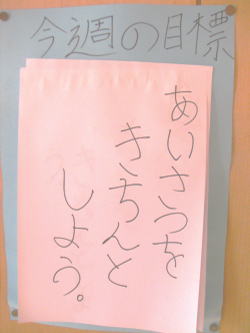 今週の目標
あいさつを
きちんと
しよう。